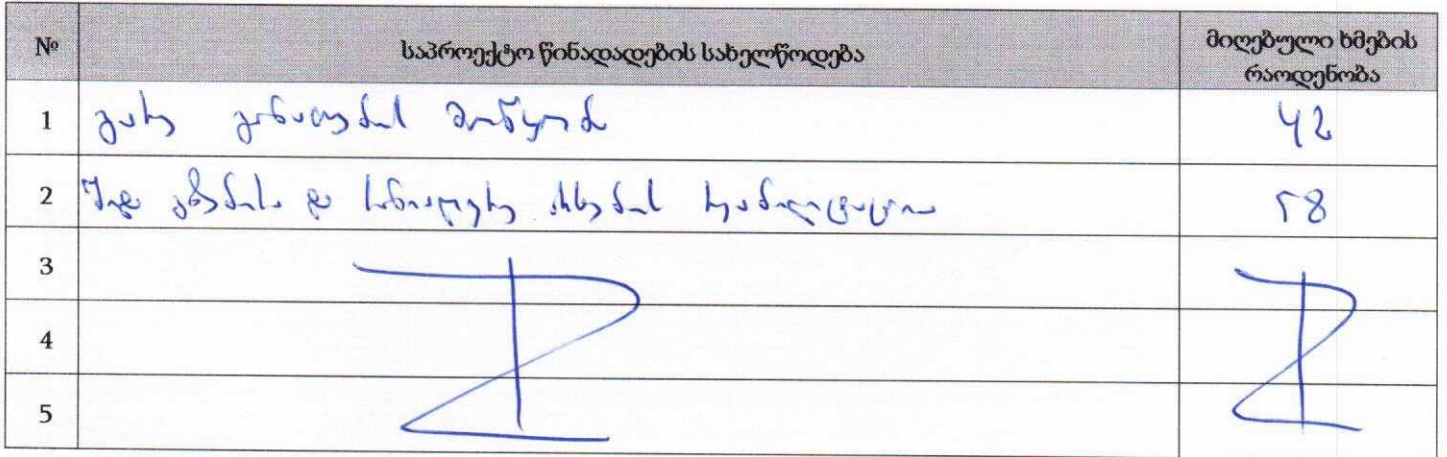 № საპროექტო წინადადების სახელწოდება მიღებული ხმების რაოდენობა
1 გარე განათების მოწყობა 42
2 შიდა გზების და სანიაღვრე არხების რეაბილიტაცია 58
3
4
5